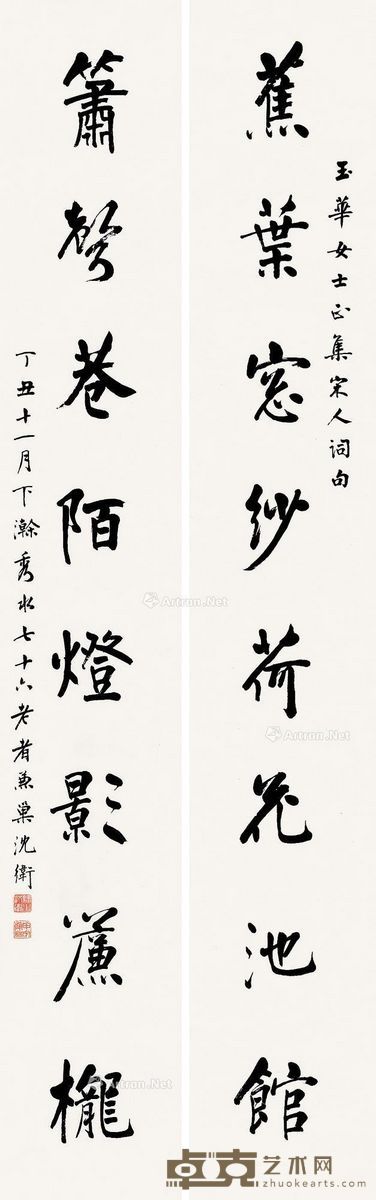 玉華女士正集宋人词句
蕉葉窓紗荷花池館
簫聲巷陌燈影簾櫳
丁丑十一月下澣秀水七十六老者兼巢沈衛
Artron.Net
Artron.Net
Artron.Net
卓克艺术网
www.zhuokearts.com